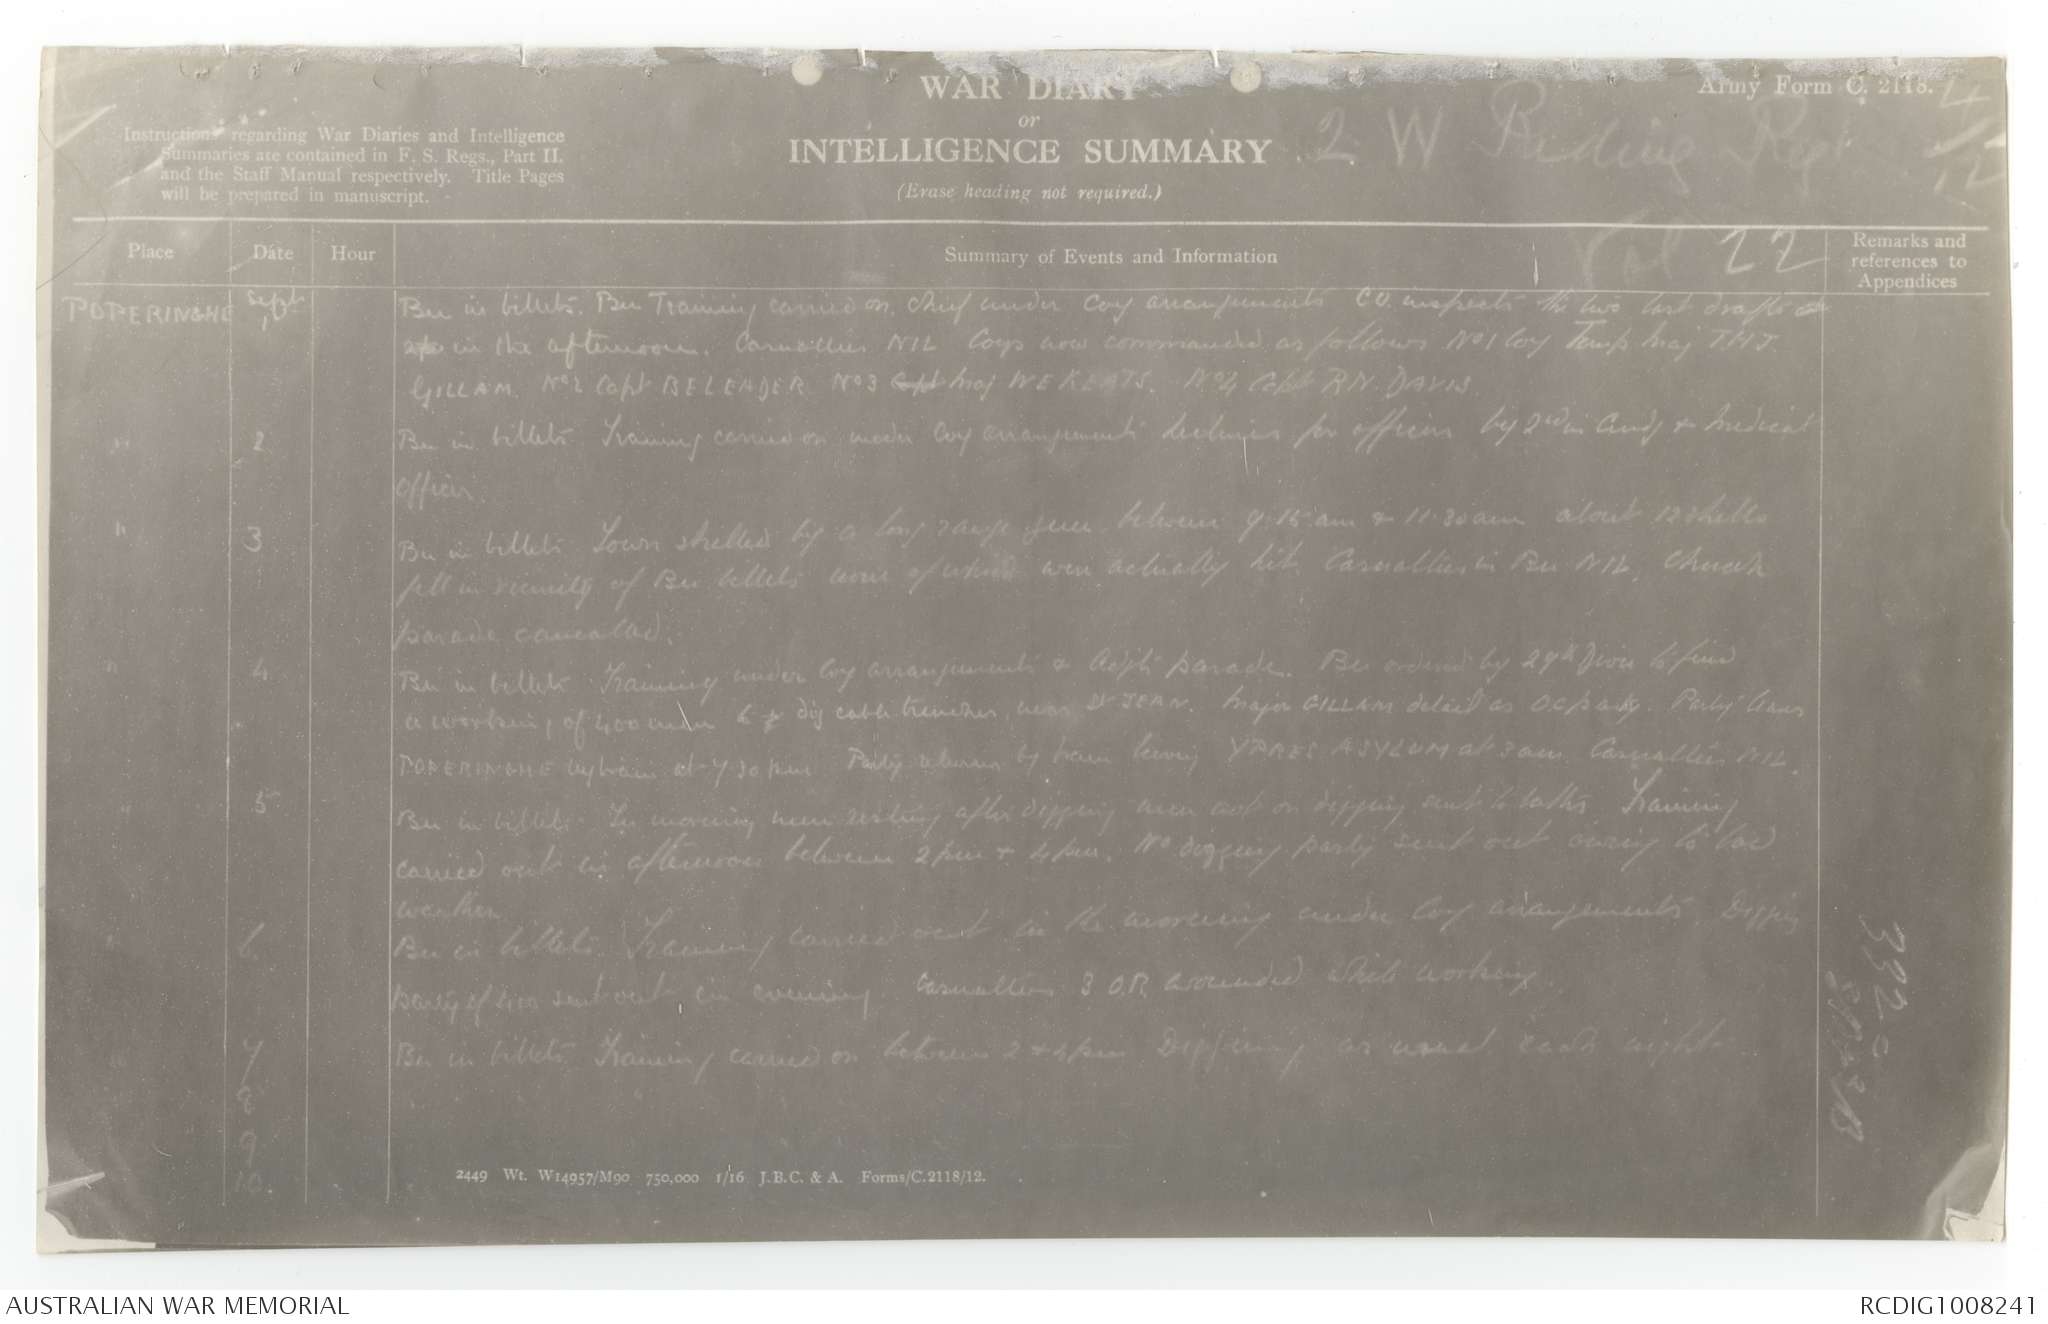 WAR DIARY
or
INTELLIGENCE SUMMARY
(Erase heading not required.)
Army Form C. 2118.
2 W Riding Regt
4/12
Vol 22
Instructions regarding War Diaries and Intelligence
Summaries are contained in F. S. Regs., Part II.
and the Staff Manual respectively. Title Pages
will be prepared in manuscript.
Place Date Hour Summary of Events and Information Remarks and references to Appendices
POPERINGHE Sept 1 Bn in billets. Bn Training carried on chief under Coy arrangements C.O. inspects the two last drafts
in the afternoon. Casualties NIL Coys now commanded as follows No 1 Coy Temp Maj T.H.J.
GILLAM. No 2 Capt BELENDER No 3 Capt Maj W E KEATS. No 4 Capt R.N. DAVIS
" 2 Bn in billets Training carried on under Coy arrangements Lectures for officers by 2nd in Cmdg & Medical
Officer.
" 3 Bn in billets Town shelled by a long range gun between 9.15 am & 11.30 am about 12 shells
fell in vicinity of Bn billets none of which were actually hit. Casualties in Bn NIL. Church
parade cancelled.
" 4 Bn in billets Training under Coy arrangements & Adjts parade. Bn ordered by 29th Divn to find
a working of 400 men to dig cable trenches near St JEAN. Major GILLAM detailed as OC party. Party leaves
POPERINGHE by train at 7.30 pm Party returns by train leaving YPRES ASYLUM at 3 am. Casualties NIL.
" 5 Bn in billets. In morning men resting after digging men not on digging sent to baths. Training
carried out in afternoon between 2 pm & 4 pm. No digging party sent out owing to bad
weather.
" 6 Bn in billets. Training carried out in the morning under Coy arrangements. Digging
party of 400 sent out in evening. Casualties 3 O.R. wounded while working.
" 7 Bn in billets Training carried on between 2 & 4 pm Digging as usual each night.
8
9
10
2449 Wt. W14957/M90 750,000 1/16 J.B.C. & A. Forms/C.2118/12.
AUSTRALIAN WAR MEMORIAL
RCDIG1008241